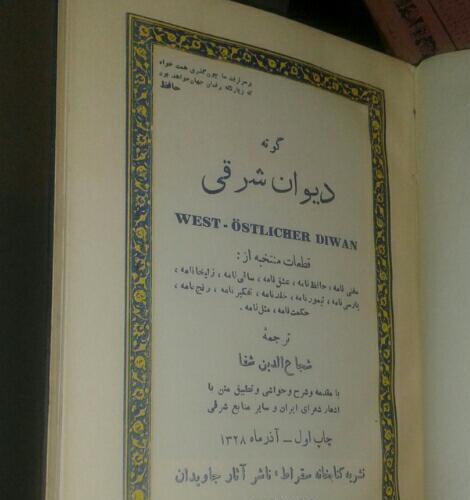 بر سر تربت ما چون گذری همت خواه
که زیارتگه رندان جهان خواهد بود
حافظ
گوته
دیوان شرقی
WEST-ÖSTLICHER DIWAN
قطعات منتخبه از:
مغنی نامه، حافظ نامه، عشق نامه، ساقی نامه، زلیخا نامه،
پارسی نامه، تیمور نامه، خلد نامه، تفکیر نامه، رنج نامه،
حکمت نامه، مثل نامه.
ترجمهٔ
شجاع‌الدین شفا
با مقدمه و شرح و حواشی و تطبیق متن با
اشعار شعرای ایران و سایر منابع شرقی
چاپ اول – آذر ماه ۱۳۲۸
نشریه کتابخانه سقراط، ناشر آثار جاویدان